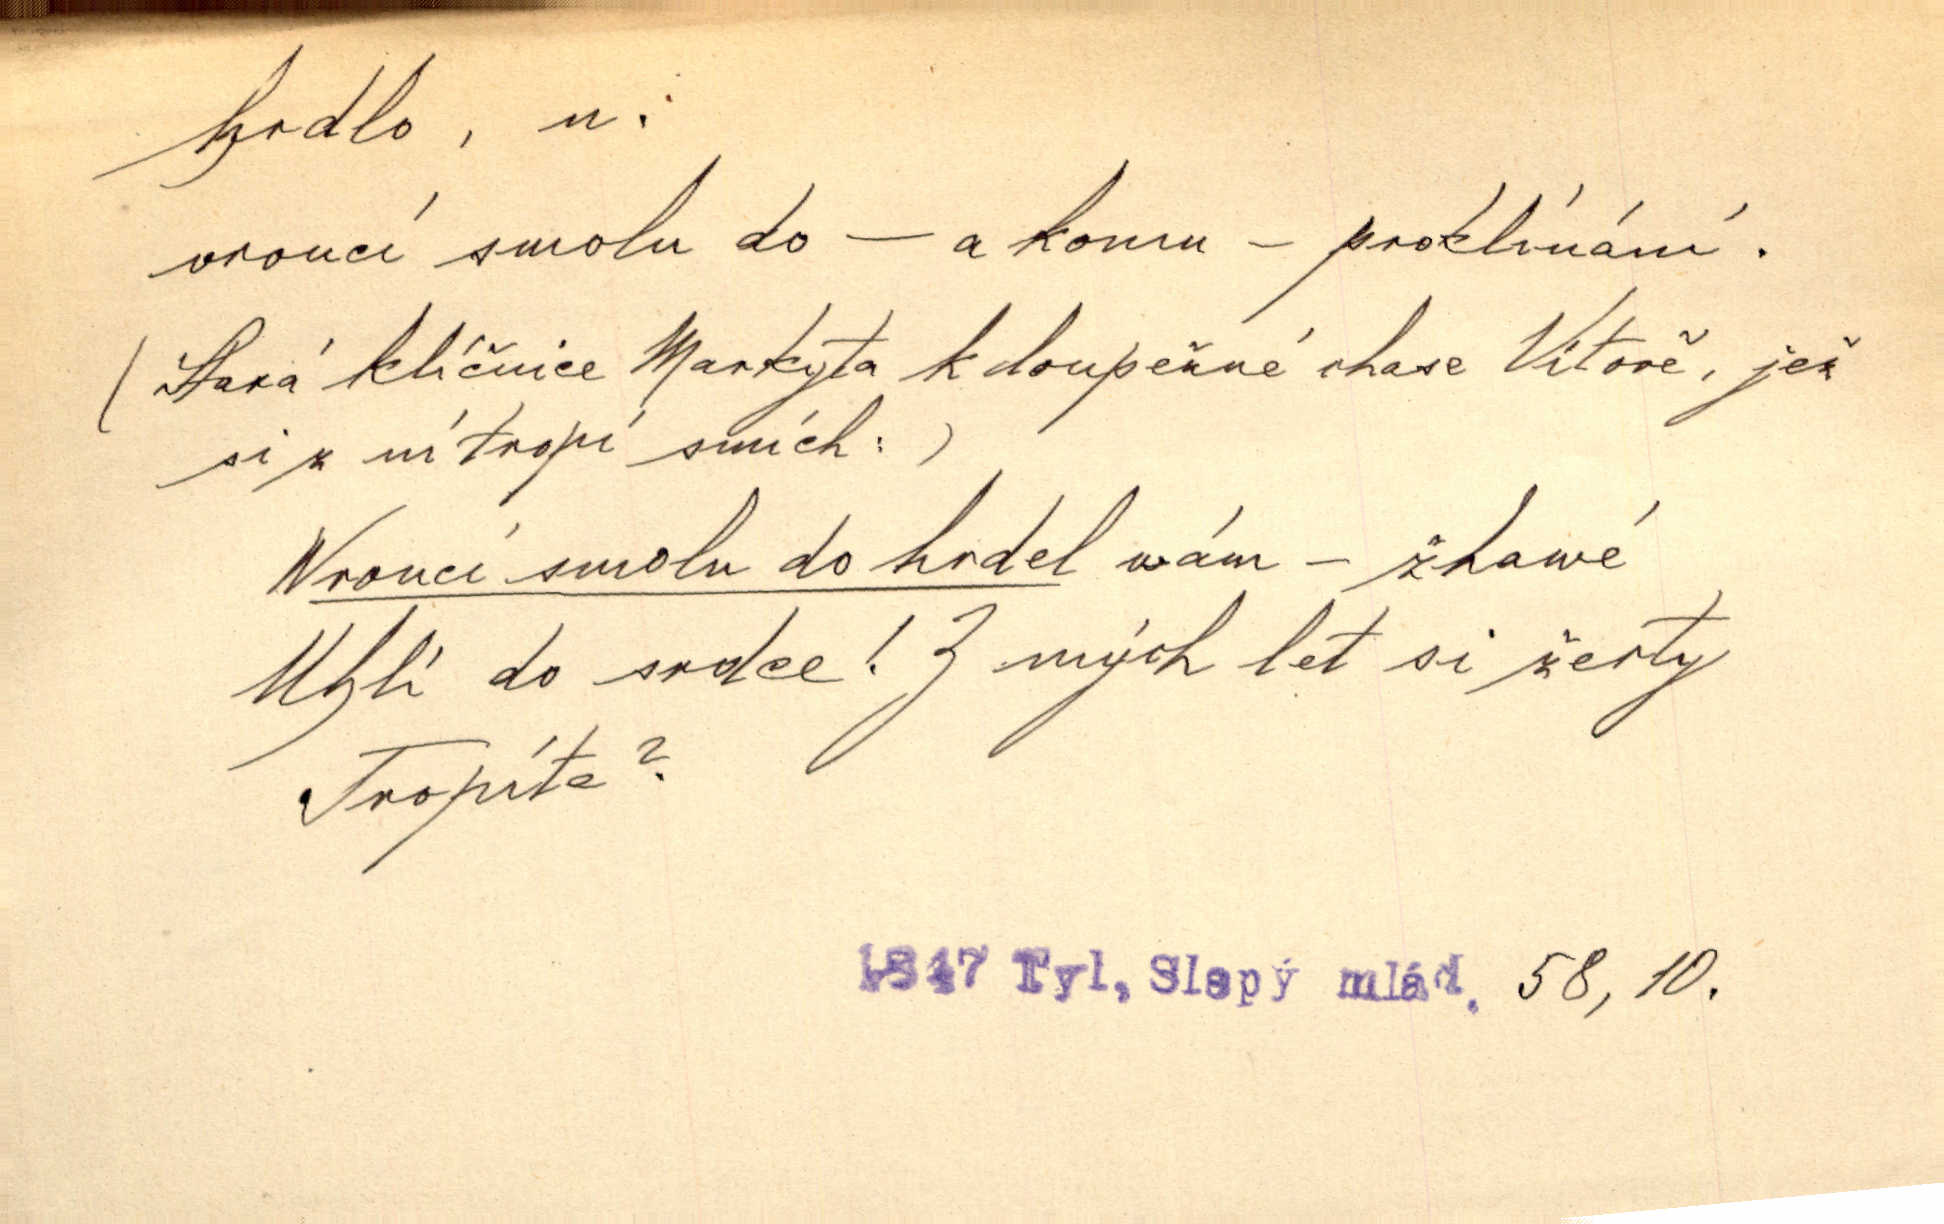 hrdlo, n.
vroucí smolu do — a komu – proklínání.
(Stará klíčnice Markyta k doupežné chase Vítově, jež
si z ní tropí smích:)
Wroucí smolu do hrdel wám – žhawé
Uhlí do srdce! Z mých let si žerty
Tropíte?
1847 Tyl, Slepý mlád. 58, 10.